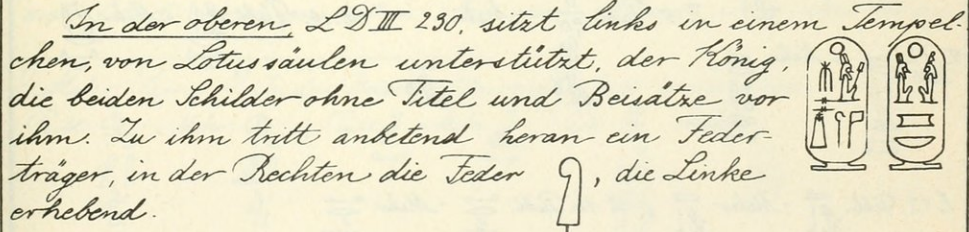 In der oberen, L D III 230, sitzt links in einem Tempel-
chen, von Lotussäulen unterstützt, der König,
die beiden Schilder ohne Titel und Beisätze vor
ihm. Zu ihm tritt anbetend heran ein Feder-
träger, in der Rechten die Feder , die Linke
erhebend.